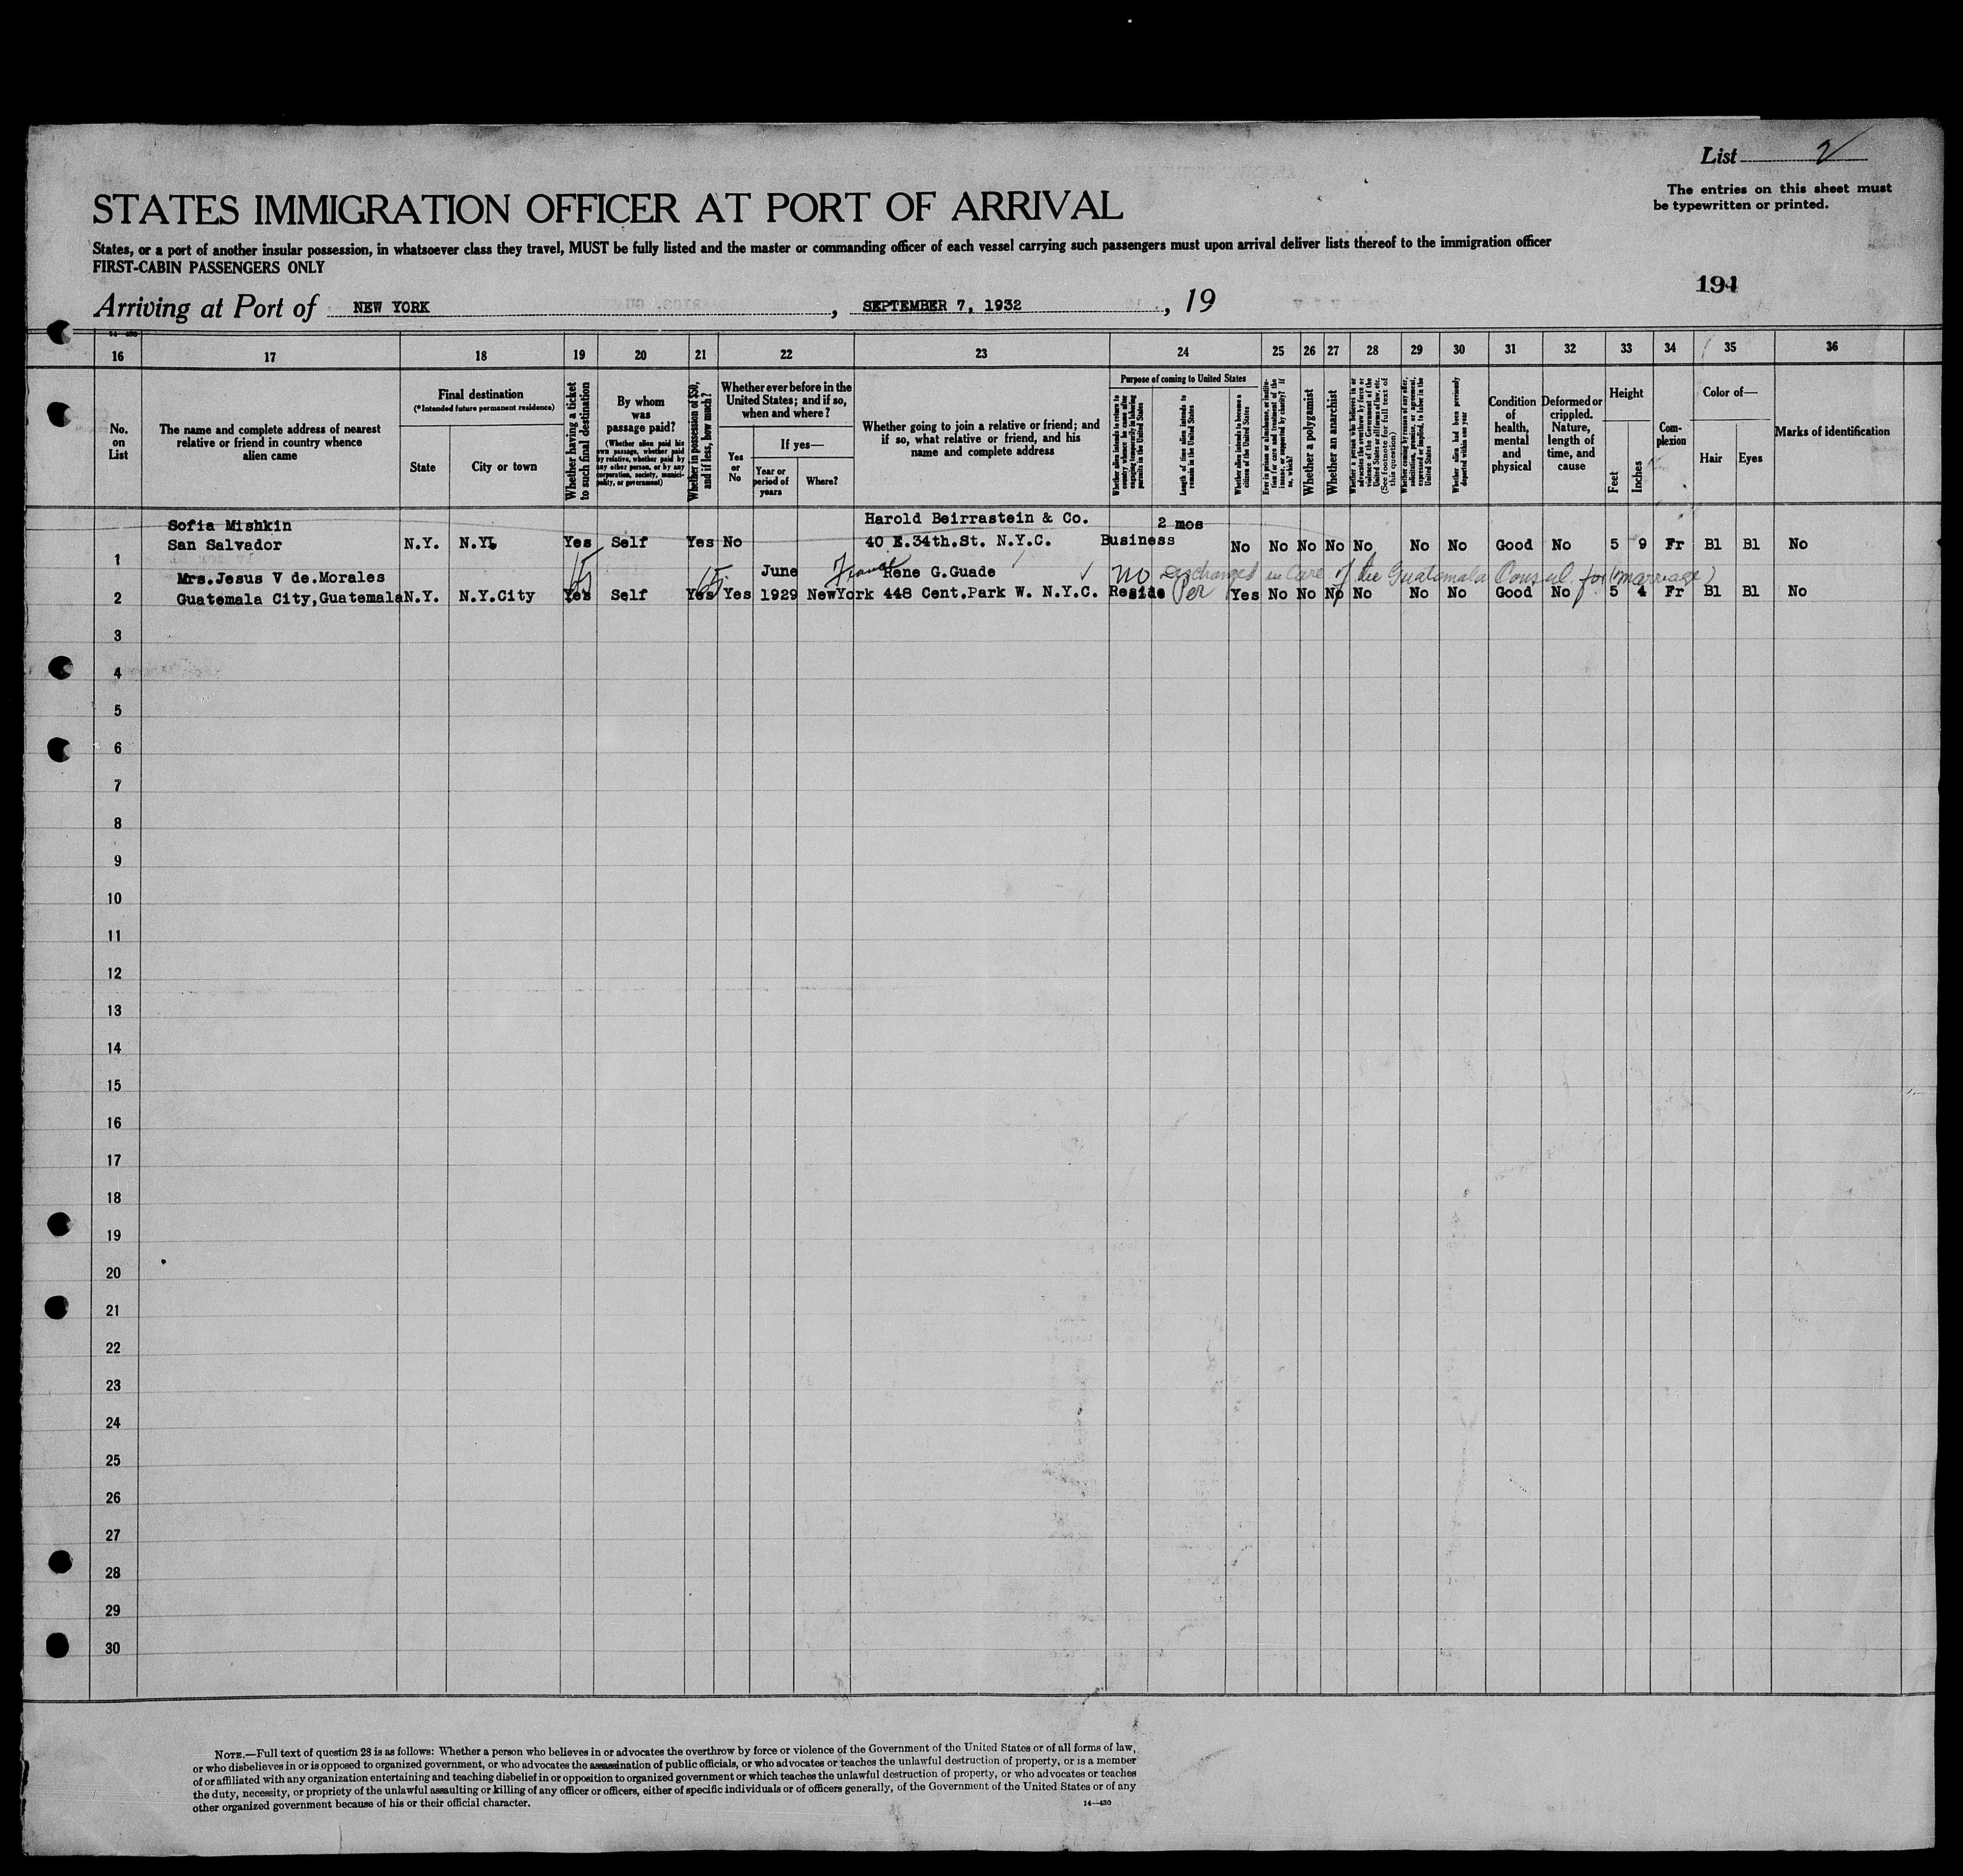 List 2
The entries on this sheet must
be typewritten or printed.
STATES IMMIGRATION OFFICER AT PORT OF ARRIVAL
States, or a port of another insular possession, in whatsoever class they travel, MUST be fully listed and the master or commanding officer of each vessel carrying such passengers must upon arrival deliver lists thereof to the immigration officer
FIRST-CABIN PASSENGERS ONLY
191
Arriving at Port of NEW YORK, SEPTEMBER 7, 1932, 19
16 17 18 19 20 21 22 23 24 25 26 27 28 29 30 31 32 33 34 35 36
No.
on
List
The name and complete address of nearest
relative or friend in country whence
alien came
Final destination
(*Intended future permanent residence)
State
City or town
Whether having a ticket
to such final destination
By whom
was
passage paid?
(Whether alien paid his
own passage, whether paid
by relative, whether paid by
any other person, or by any
corporation, society, munici-
pality, or government)
Whether in possession of $50,
and if less, how much?
Whether ever before in the
United States; and if so,
when and where?
Yes
or
No
If yes—
Year or
period of
years
Where?
Whether going to join a relative or friend; and
if so, what relative or friend, and his
name and complete address
Purpose of coming to United States
Whether alien intends to return to
country whence he came after
engaging temporarily in laboring
pursuits in the United States
Length of time alien intends to
remain in the United States
Whether alien intends to become a
citizen of the United States
Ever in prison or almshouse, or institu-
tion for care and treatment of the
insane, or supported by charity? If
so, which?
Whether a polygamist
Whether an anarchist
Whether a person who believes in or
advocates the overthrow by force or
violence of the Government of the
United States or all forms of law, etc.
(See footnote for full text of
this question)
Whether coming by reason of any offer,
solicitation, promise, or agreement,
expressed or implied, to labor in the
United States
Whether alien had been previously
deported within one year
Condition
of
health,
mental
and
physical
Deformed or
crippled.
Nature,
length of
time, and
cause
Height
Feet
Inches
Com-
plexion
Color of—
Hair
Eyes
Marks of identification
Sofia Mishkin Harold Beirrastein & Co. 2 mos
1 San Salvador N.Y. N.Y. Yes Self Yes No 40 E.34th.St. N.Y.C. Business No No No No No No No Good No 5 9 Fr Bl Bl No
Mrs.Jesus V de.Morales June France Rene G.Guade no discharged in care of the Guatamala Consul for (marriage)
2 Guatemala City,Guatemala N.Y. N.Y.City Yes Self Yes Yes 1929 NewYork 448 Cent.Park W. N.Y.C. Reside Per Yes No No No No No No Good No 5 4 Fr Bl Bl No
3
4
5
6
7
8
9
10
11
12
13
14
15
16
17
18
19
20
21
22
23
24
25
26
27
28
29
30
NOTE.—Full text of question 28 is as follows: Whether a person who believes in or advocates the overthrow by force or violence of the Government of the United States or of all forms of law,
or who disbelieves in or is opposed to organized government, or who advocates the assassination of public officials, or who advocates or teaches the unlawful destruction of property, or is a member
of or affiliated with any organization entertaining and teaching disbelief in or opposition to organized government or which teaches the unlawful destruction of property, or who advocates or teaches
the duty, necessity, or propriety of the unlawful assaulting or killing of any officer or officers, either of specific individuals or of officers generally, of the Government of the United States or of any
other organized government because of his or their official character.
14—430